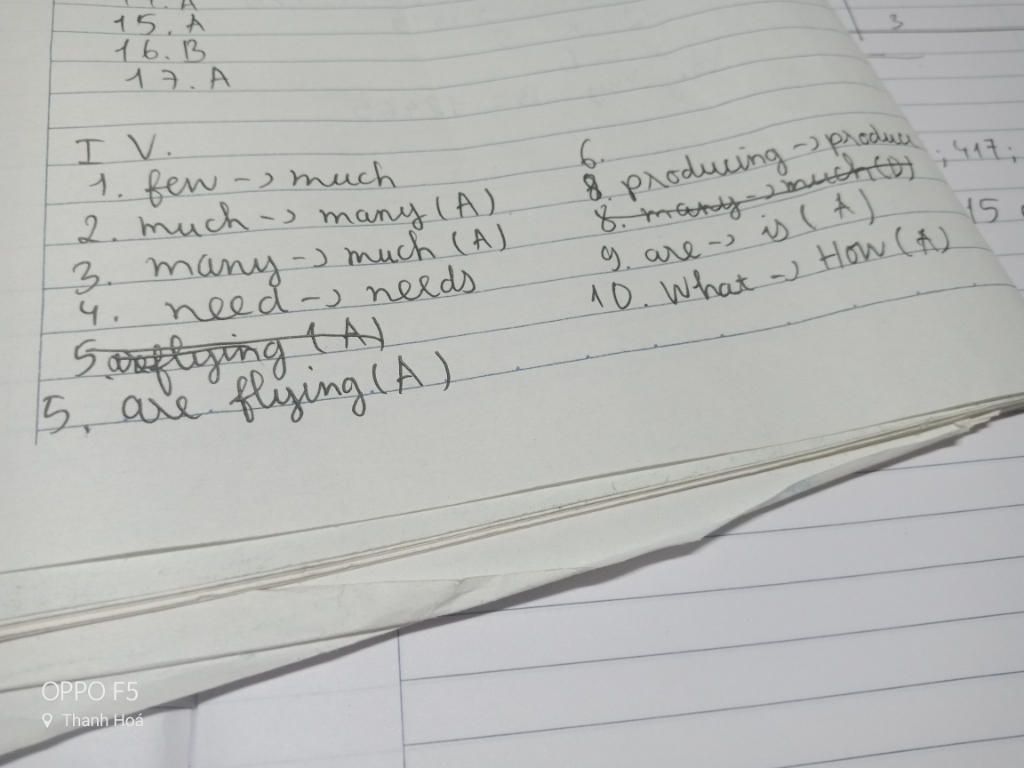 15. A
16. B
17. A
IV.
1. few -> much
2. much -> many (A)
3. many -> much (A)
4. need -> needs
5. are flying (A)
6.
8. producing ->
8. many -> much (D)
9. are -> is (A)
10. What -> How (A)
3
; 417;
15
OPPO F5
Thanh Hoá